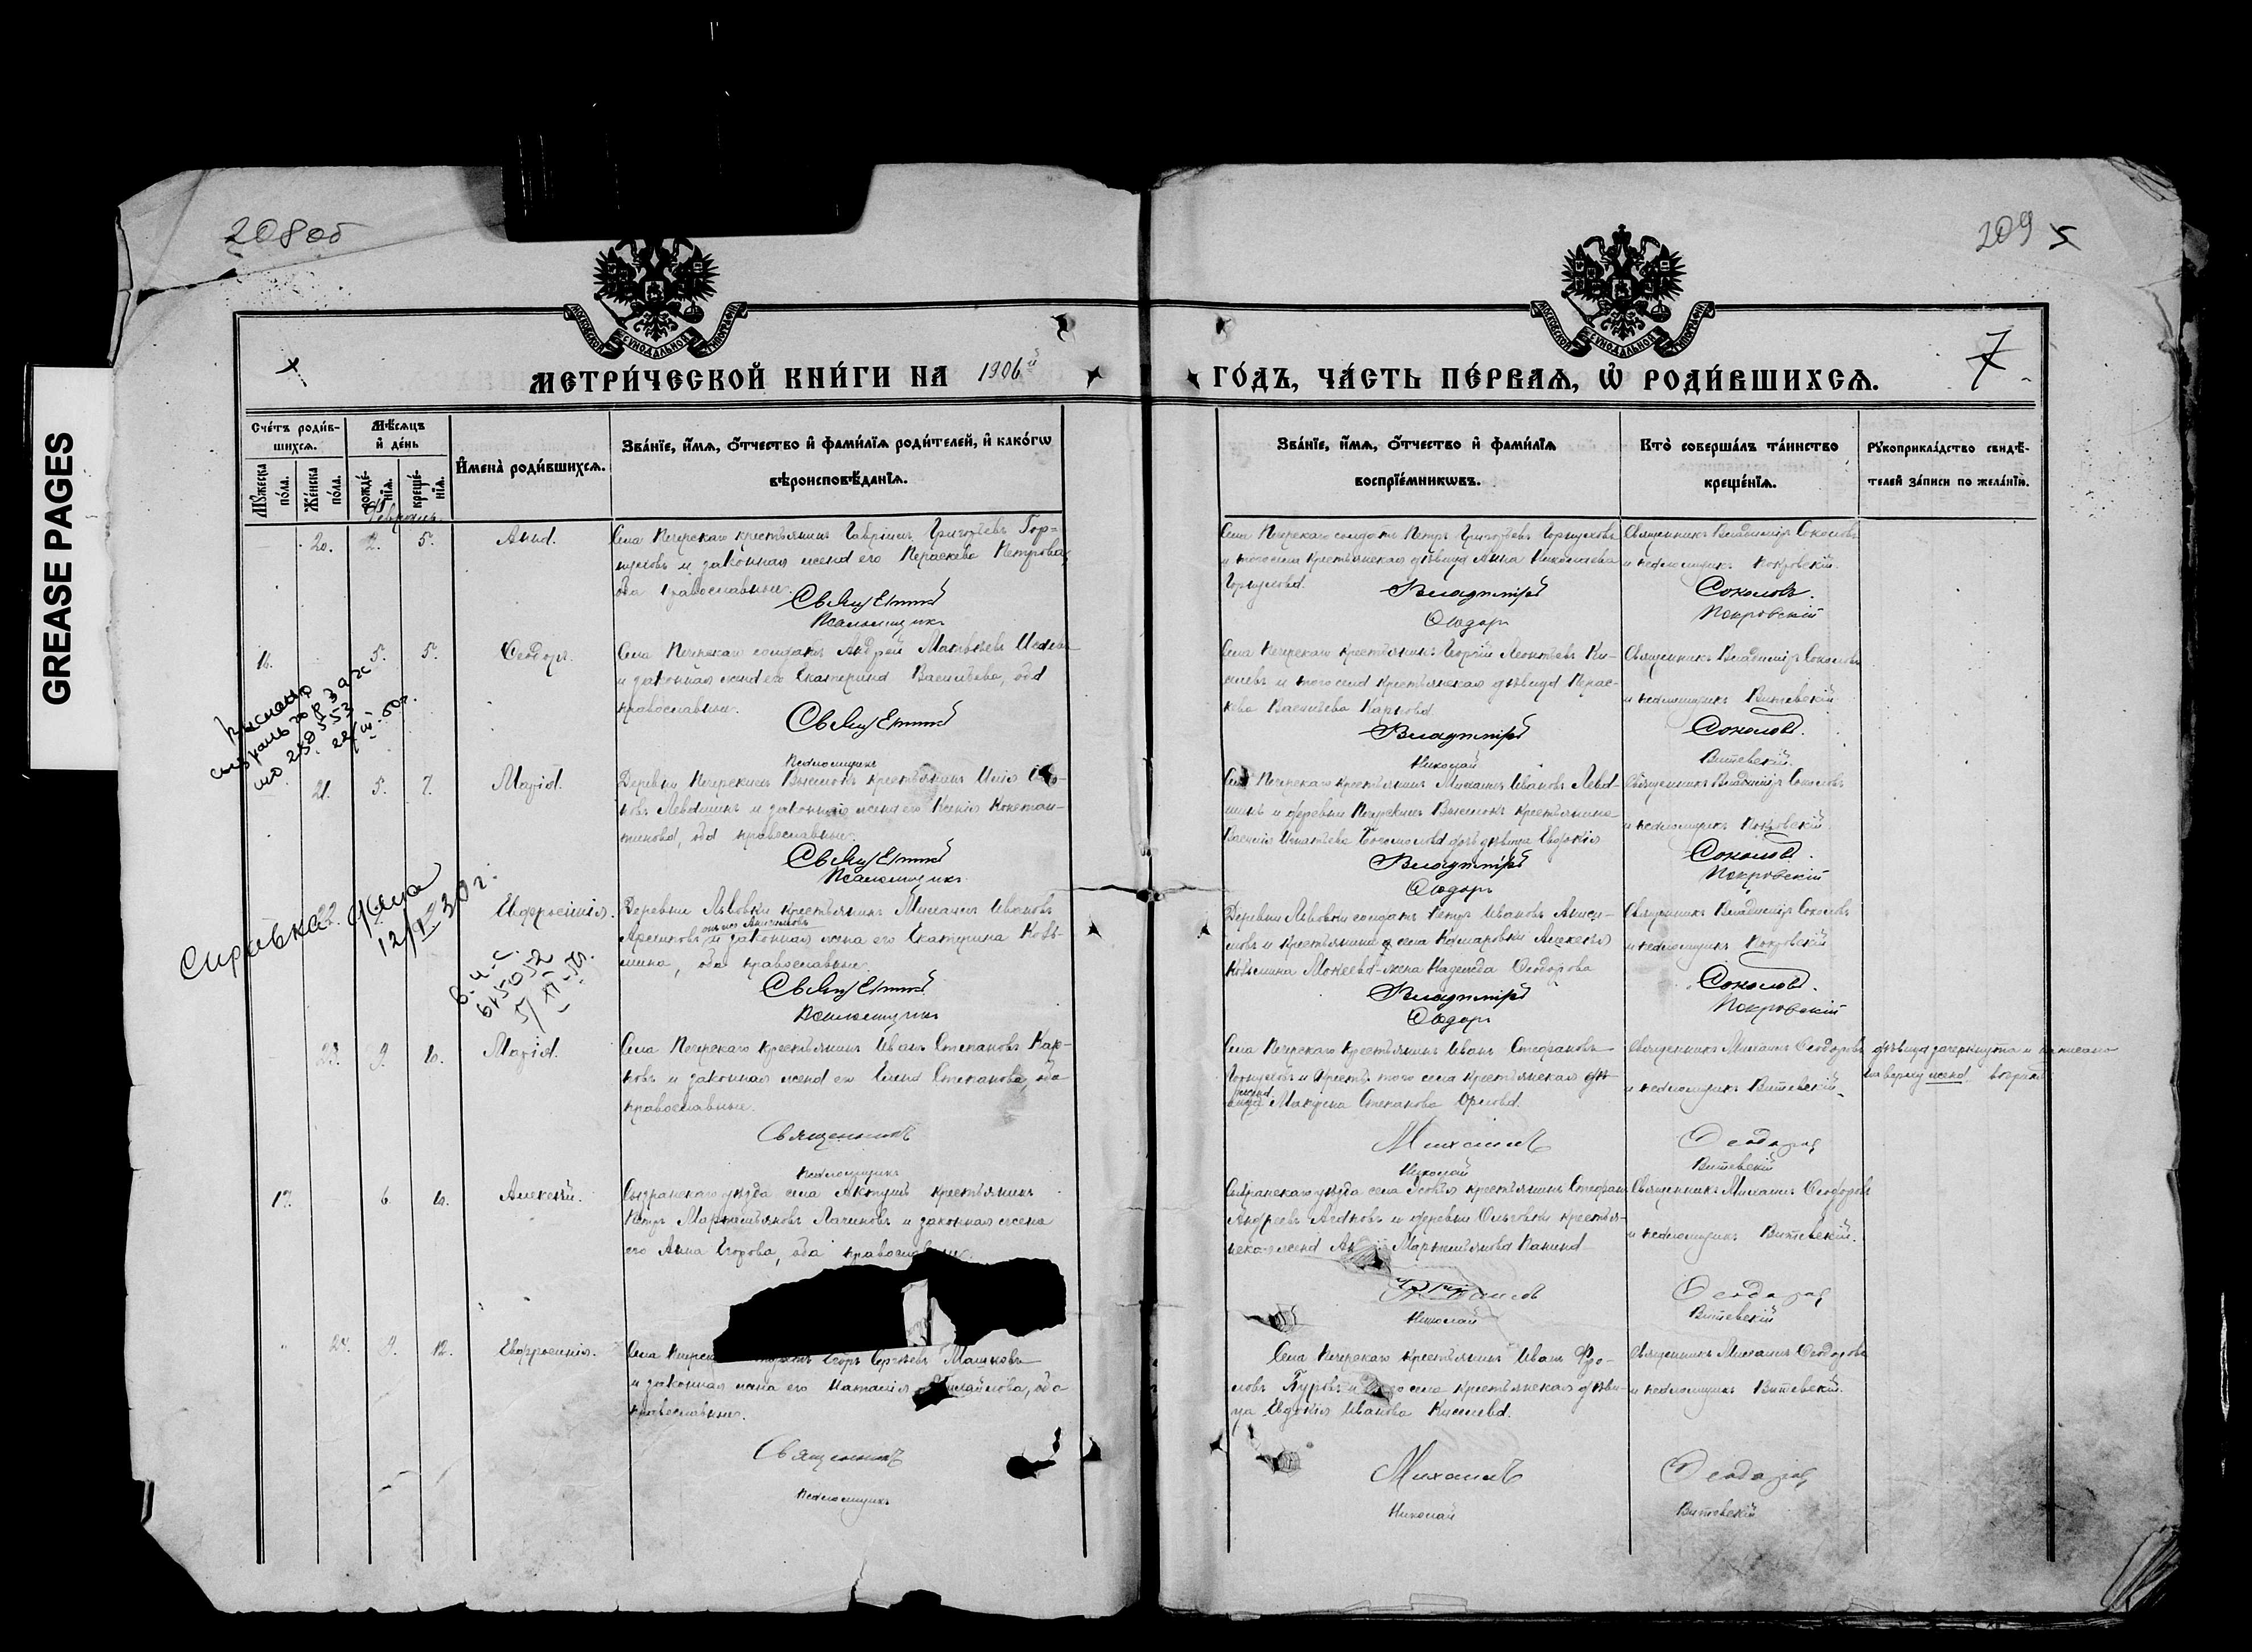 GREASE PAGES
208об
209 5
7
МОСКОВСКОЙ СѴНОДАЛЬНОЙ ТИПОГРАФІИ
МОСКОВСКОЙ СѴНОДАЛЬНОЙ ТИПОГРАФІИ
МЕТРИ́ЧЕСКОЙ КНИ́ГИ НА 1906й
ГО́ДЪ, ЧА́СТЬ ПЕ́РВАѦ, Ѡ҆ РОДИ́ВШИХСѦ.
Сче́тъ роди́в-
шихсѧ.
Мꙋ́жеска по́ла.
Же́нска по́ла.
Мѣ́сѧцъ
и҆ де́нь
рожде́нїѧ.
креще́нїѧ.
И҆мена̀ роди́вшихсѧ.
Зва́нїе, и҆́мѧ, ѻ҆́тчество и҆ фами́лїѧ роди́телей, и҆ како́гѡ
вѣроисповѣ́данїѧ.
Зва́нїе, и҆́мѧ, ѻ҆́тчество и҆ фами́лїѧ
воспрїе́мникѡвъ.
Кто̀ соверша́лъ та́инство
креще́нїѧ.
Рꙋкоприкла́дство свидѣ́-
телей за́писи по жела́нїю.
Февраль.
20. 2. 5. Анна.
Села Печерскаго крестьянинъ Гавріилъ Григорьевъ Гор-
шуновъ и законная жена его Параскева Петрова,
оба православные.
Священникъ
Псаломщикъ
Села Печерскаго солдатъ Петръ Григорьевъ
и того села крестьянская дѣвица Анна Николаева
Владиміръ
Ѳеодоръ
Священникъ Владиміръ Соколовъ
и псаломщикъ Покровскій.
Соколовъ.
Покровскій
16. 5. 5. Ѳеодоръ.
Села Печерскаго солдатъ Андрей Матвѣевъ
и законная жена его Екатерина Васильева, оба
православные.
Священникъ
Псаломщикъ
Села Печерскаго крестьянинъ Георгій Леонтьевъ Ки-
селевъ и того села крестьянская дѣвица Парас-
кева Васильева Карпова
Владиміръ
Николай
Священникъ Владиміръ Соколовъ
и псаломщикъ Витевскій
Соколовъ.
Витевскій.
22/III-50г.
21. 5. 7. Марія.
Деревни Печерскихъ Выселокъ крестьянинъ
Левашинъ и законная жена его Ксенія Констан-
тинова, оба православные.
Священникъ
Псаломщикъ
Села Печерскаго крестьянинъ Михаилъ Ивановъ Лева-
шинъ и деревни Печерскихъ Выселокъ крестьянина
Василія Игнатьева Богомолова дочь дѣвица Евдокія
Владиміръ
Ѳеодоръ
Священникъ Владиміръ Соколовъ
и псаломщикъ Покровскій
Соколовъ.
Покровскій
22. Евфросинія.
Справка
Деревни Львовки крестьянинъ Михаилъ Ивановъ
и законная жена его Екатерина Козь-
мина, оба православные.
Священникъ
Псаломщикъ
Деревни Львовки солдатъ Петръ Ивановъ Аниси-
мовъ и крестьянина села Комаровки Алексѣя
Козьмина Мокеева жена Надежда Ѳеодорова
Владиміръ
Ѳеодоръ
Священникъ Владиміръ Соколовъ
и псаломщикъ Покровскій
Соколовъ.
Покровскій
23. 9. 10. Марія.
Села Печерскаго крестьянинъ Иванъ Степановъ Кар-
повъ и законная жена его Елена Степанова, оба
православные.
Священникъ
Псаломщикъ
Села Печерскаго крестьянинъ Иванъ Стефановъ
Горшуновъ и того села крестьянская дѣ-
вица жена Макрина Степанова Орлова.
Михаилъ
Николай
Священникъ Михаилъ Ѳеодоровъ
и псаломщикъ Витевскій.
Ѳеодоровъ
Витевскій
дѣвица зачеркнута и написано
на верху жена.
17. 6 10. Алексѣй.
Сызранскаго уѣзда села Актушъ крестьянинъ
Петръ Мартемьяновъ Лачиновъ и законная жена
его Анна Егорова, оба православные.
Сызранскаго уѣзда села крестьянинъ Стефанъ
Андреевъ и деревни Ольговки крестьян-
ская жена Мартемьянова Панина
Михаилъ
Николай
Священникъ Михаилъ Ѳеодоровъ
и псаломщикъ Витевскій.
Ѳеодоровъ
Витевскій
24. 9. 12. Евфросинія.
Села Печерска Егоръ Сергѣевъ Машковъ
и законная жена его Наталія Михайлова, оба
православные.
Священникъ
Псаломщикъ
Села Печерскаго крестьянинъ Иванъ Фро-
ловъ Буровъ и того села крестьянская дѣви-
ца Евдокія Иванова Киселева.
Михаилъ
Николай
Священникъ Михаилъ Ѳеодоровъ
и псаломщикъ Витевскій.
Ѳеодоровъ
Витевскій